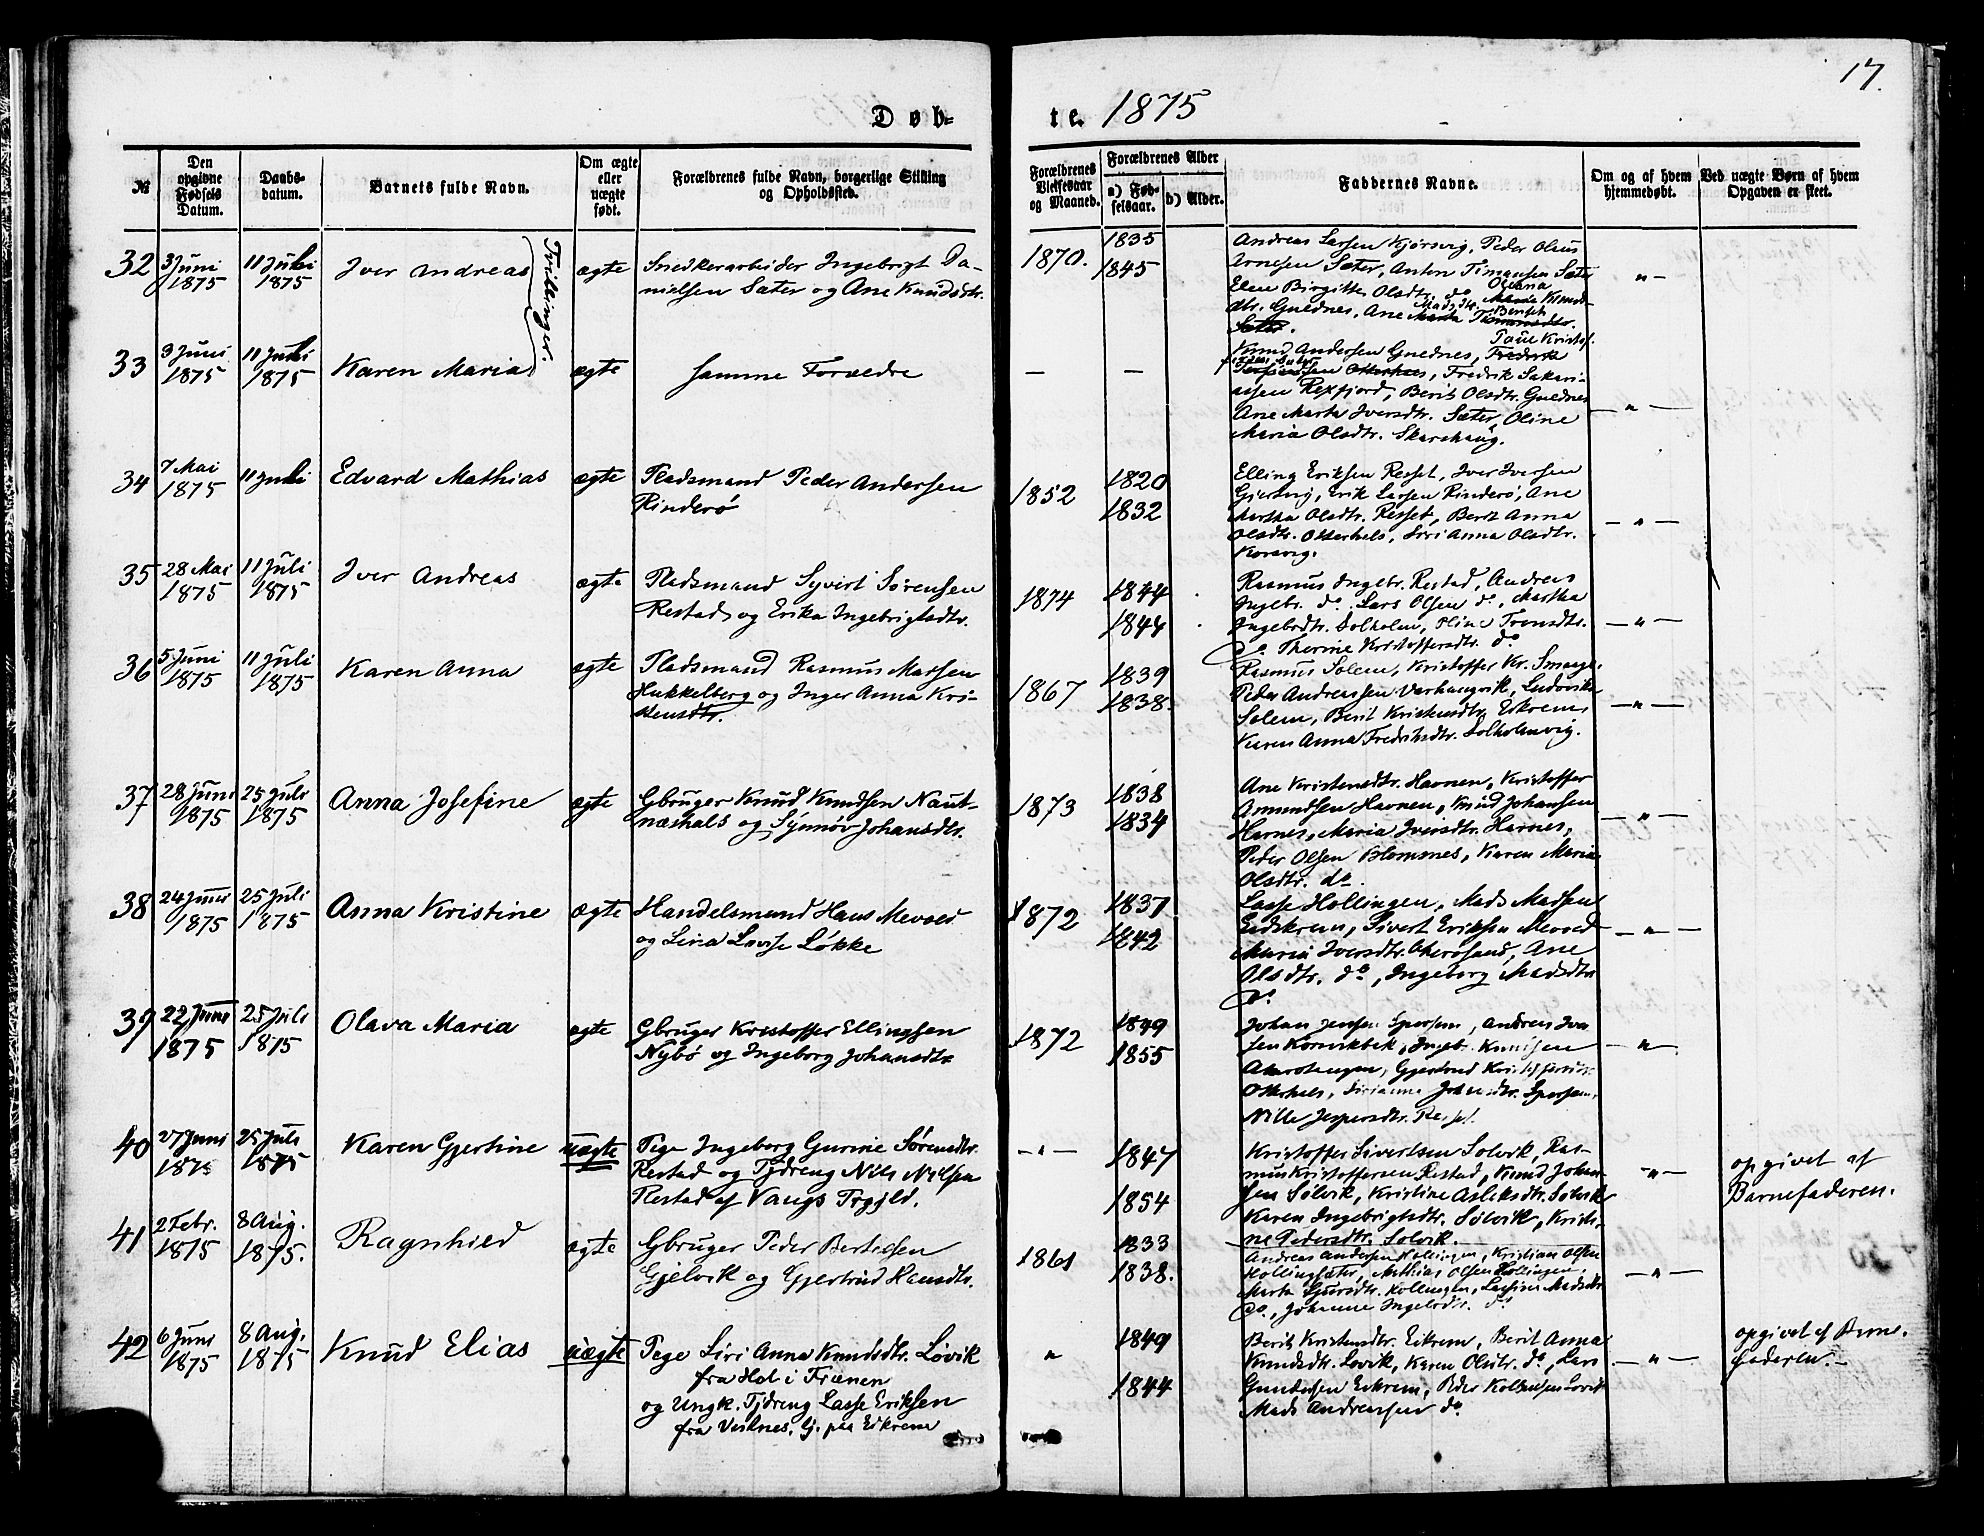 17.
Døb= te. 1875
№ Den opgivne Fødsels Datum. Daabs-datum. Barnets fulde Navn. Om ægte eller uægte født. Forældrenes fulde Navn, borgerlige Stilling og Opholdssted. Forældrenes Vielsesaar og Maaned. Forældrenes Alder a) Fødselsaar. b) Alder. Faddernes Navne. Om og af hvem hjemmedøbt. Ved uægte Børn af hvem Opgaven er skeet.
32 3 Juni 1875 11 Juli 1875 Iver Andreas Tvillinger. ægte
Snedkerarbeider Ingebrigt Da-
nielsen Sæter og Ane Knudsdtr.
1870. 1835 1845
Andreas Larsen Kjørsvig, Peder Olaus
Arnesen Sæter, Anton Timansen Sæter
Elen Birgitte Olsdtr. do Oleana Knuds-
dtr. Gueldnes, Ane
Sæter.
— " —
33 3 Juni 1875 11 Juli 1875 Karen Maria ægte
Samme Forældre
— —
Paul Kristof.
Knud Andersen Gueldnes, Fredrik
Otterhals, Fredrik Sakari-
assen Rexfjord, Berit Olsdtr. Gueldnes
Ane Marta Iversdtr. Sæter, Oline
Maria Olsdtr. Skarshaug.
— " —
34 7 Mai 1875 11 Juli Edvard Mathias ægte
Pladsmand Peder Andersen
Rinderø
1852 1820 1832
Elling Eriksen Resset, Iver Iversen
Gjertvig, Erik Larsen Rinderø, Ane
Martha Olsdtr. Resset, Berit Anna
Olsdtr. Otterhels, Siri Anna Olsdtr.
Korsvig.
— " —
35 28 Mai 1875 11 Juli 1875 Iver Andreas ægte
Pladsmand Syvert Sørensen
Restad og Erika Ingebrigtsdtr.
1874 1844 1844
Rasmus Ingebr. Restad, Andreas
Ingebr. do. Lars Olsen do, Martha
Ingebrdtr. Solholm, Oline Tronsdtr.
do. Therine Kristoffersdtr. do
— " —
36 5 Juni 1875 11 Juli 1875 Karen Anna ægte
Pladsmand Rasmus Madsen
Hukkelberg og Inger Anna Kri-
stensdtr.
1867 1839 1838.
Rasmus Solem, Kristoffer Kr. Smaage,
Peder Andreassen Varhaugvik, Ludovika
Solem, Berit Kristensdtr. Eikrem
Karen Anna Fredriksdtr. Solholmvig.
— " —
37 28 Juni 1875 25 Juli 1875 Anna Josefine ægte
Gbruger Knud Knudsen Naut-
næshals og Synnøv Johansdtr.
1873 1838 1834
Ane Kristensdtr. Havnen, Kristoffer
Amundsen Havnen, Knud Johansen
Harnes, Maria Iversdtr. Harnes,
Peder Olsen Blomnes, Karen Maria
Olsdtr. do.
— " —
38 24 Juni 1875 25 Juli 1875 Anna Kristine ægte
Handelsmand Hans Mevold
og Lina Lovise Løkke
1872 1837 1842
Lasse Hollingen, Mads Madsen
Eidskrem, Sivert Eriksen Mevold
Maria Iversdtr. Akerøsund, Ane
Olsdtr. do, Ingeborg Madsdtr.
do.
— " —
39 22 Juni 1875 25 Juli 1875 Olava Maria ægte
Gbruger Kristoffer Ellingsen
Nybø og Ingeborg Johansdtr.
1872 1849 1855
Johan Jensen Sporsem, Andreas Iver
sen Korsvikbek, Ingebr. Knudsen
Akerøhaugen, Gjertrud Kristoffersdtr.
Otterhels, Sirianna Johansdtr. Sporsem,
Nille Jespersdtr. Resset.
— " —
40 27 Juni 1875 25 Juli 1875 Karen Gjertine uægte
Pige Ingeborg Gurine Sørensdtr.
Restad og Tjdreng Nils Nilsen
Restad af Vaugs Prgjld.
— " — 1847 1854
Kristoffer Sivertsen Solvik, Ras-
mus Kristoffersen Restad, Knud Johan-
sen Sølvik, Kristine Asleksdtr. Solvik
Karen Ingebrigtsdtr. Sølvik, Kristi-
ne Pedersdtr. Solvik.
— " —
opgivet af
Barnefaderen.
41 2 Febr. 1875 8 Aug. 1875. Ragnhild ægte
Gbruger Peder Bertelsen
Gjelvik og Gjertrud Hansdtr.
1861 1833 1838.
Andreas Andersen Hollingen, Kristian Olsen
Hollingsæter, Mathias Olsen Hollingen,
Marta Sjursdtr. Hollingen, Lasine Madsdtr.
do., Johanne Ingebrdtr. do
— " —
42 6 Juni 1875 8 Aug. 1875 Knud Elias uægte
Pige Siri Anna Knudsdtr. Løvik
fra Hol i Frænen
og Ungk. Tjdreng Lasse Eriksen
fra Veilnes, Tj. paa Eikrem
" 1849 1844
Berit Kristensdtr. Eikrem, Berit Anna
Knudsdtr. Lovik, Karen Olsdtr. do, Lars
Gundersen Eikrem, Peder Lovik
Mads Andreassen do.
— " —
opgivet af Barne-
faderen.